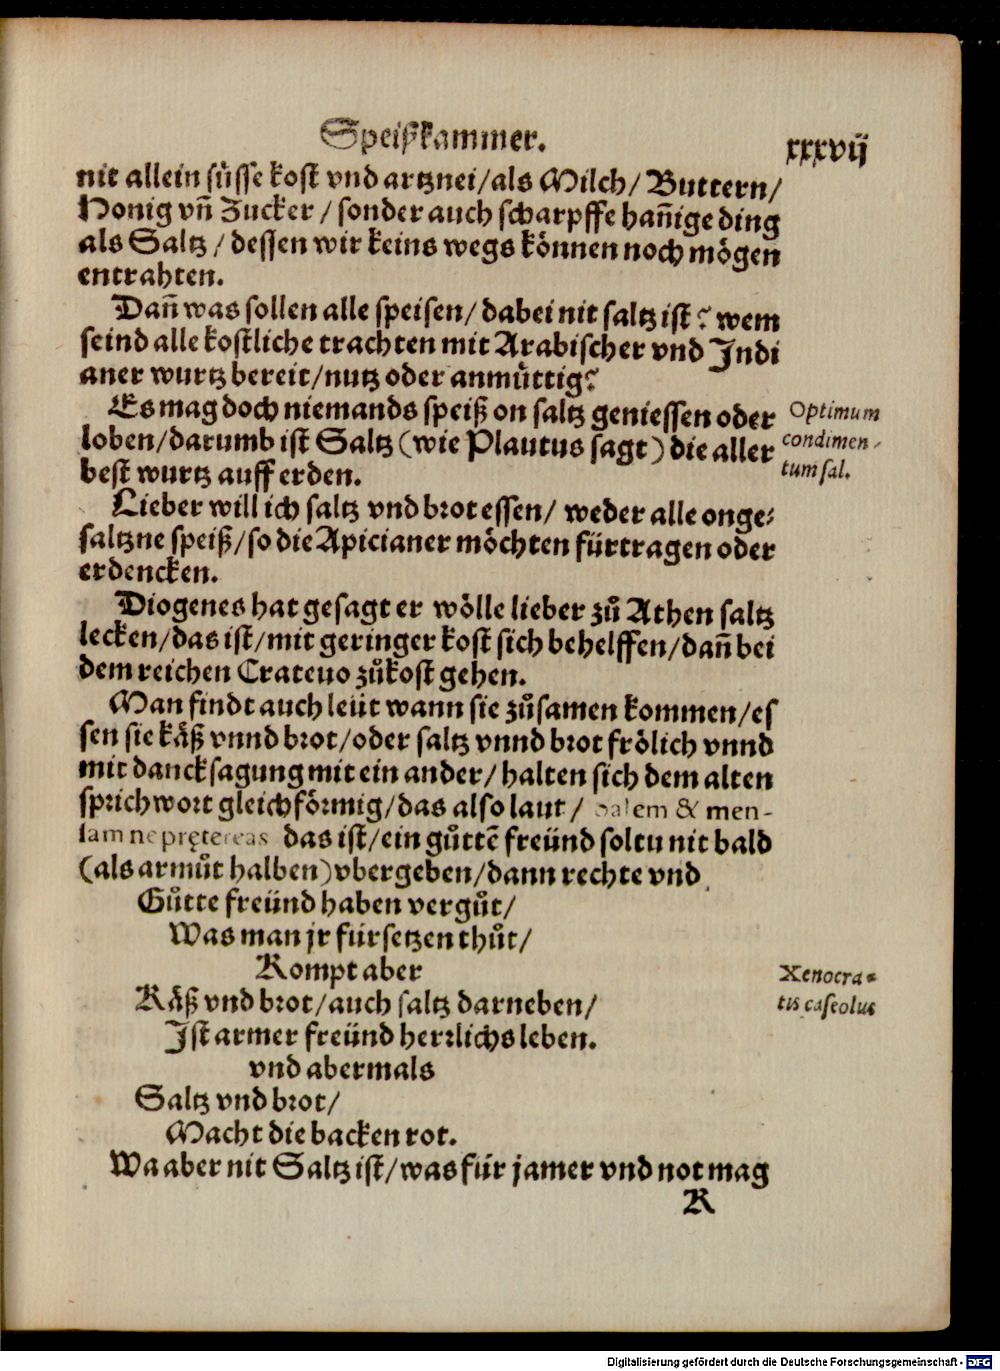 Speißkammer.
xxxvij
nit allein süsse kost vnd artznei/als Milch/ Buttern/
Honig vñ Zucker / sonder auch scharpffe hañige ding
als Saltz / dessen wir keins wegs können noch mögen
entrahten.
Dañ was sollen alle speisen/ dabei nit saltz ist? wem
seind alle kostliche trachten mit Arabischer vnd Indi
aner wurtz bereit/nutz oder anmüttig?
Es mag doch niemands speiß on saltz geniessen oder
loben/darumb ist Saltz (wie Plautus sagt) die aller
best wurtz auff erden.
Optimum
condimen-
tum sal.
Lieber will ich saltz vnd brot essen/ weder alle onge-
saltzne speiß/so die Apicianer möchten fürtragen oder
erdencken.
Diogenes hat gesagt er wölle lieber zů Athen saltz
lecken/das ist/mit geringer kost sich behelffen/dañ bei
dem reichen Crateuo zůkost gehen.
Man findt auch leüt wann sie zůsamen kommen/es
sen sie käß vnnd brot/oder saltz vnnd brot frölich vnnd
mit dancksagung mit ein ander/ halten sich dem alten
sprichwort gleichförmig/das also laut/ Salem & men-
sam ne prętereas das ist/ein gůttē freünd soltu nit bald
(als armůt halben) vbergeben/dann rechte vnd
Gůtte freünd haben vergůt/
Was man jr fürsetzen thůt/
Kompt aber
Käß vnd brot/auch saltz darneben/
Ist armer freünd herrlichs leben.
Xenocra-
tis caseolus
vnd abermals
Saltz vnd brot/
Macht die backen rot.
Wa aber nit Saltz ist/was für jamer vnd not mag
K
Digitalisierung gefördert durch die Deutsche Forschungsgemeinschaft - DFG